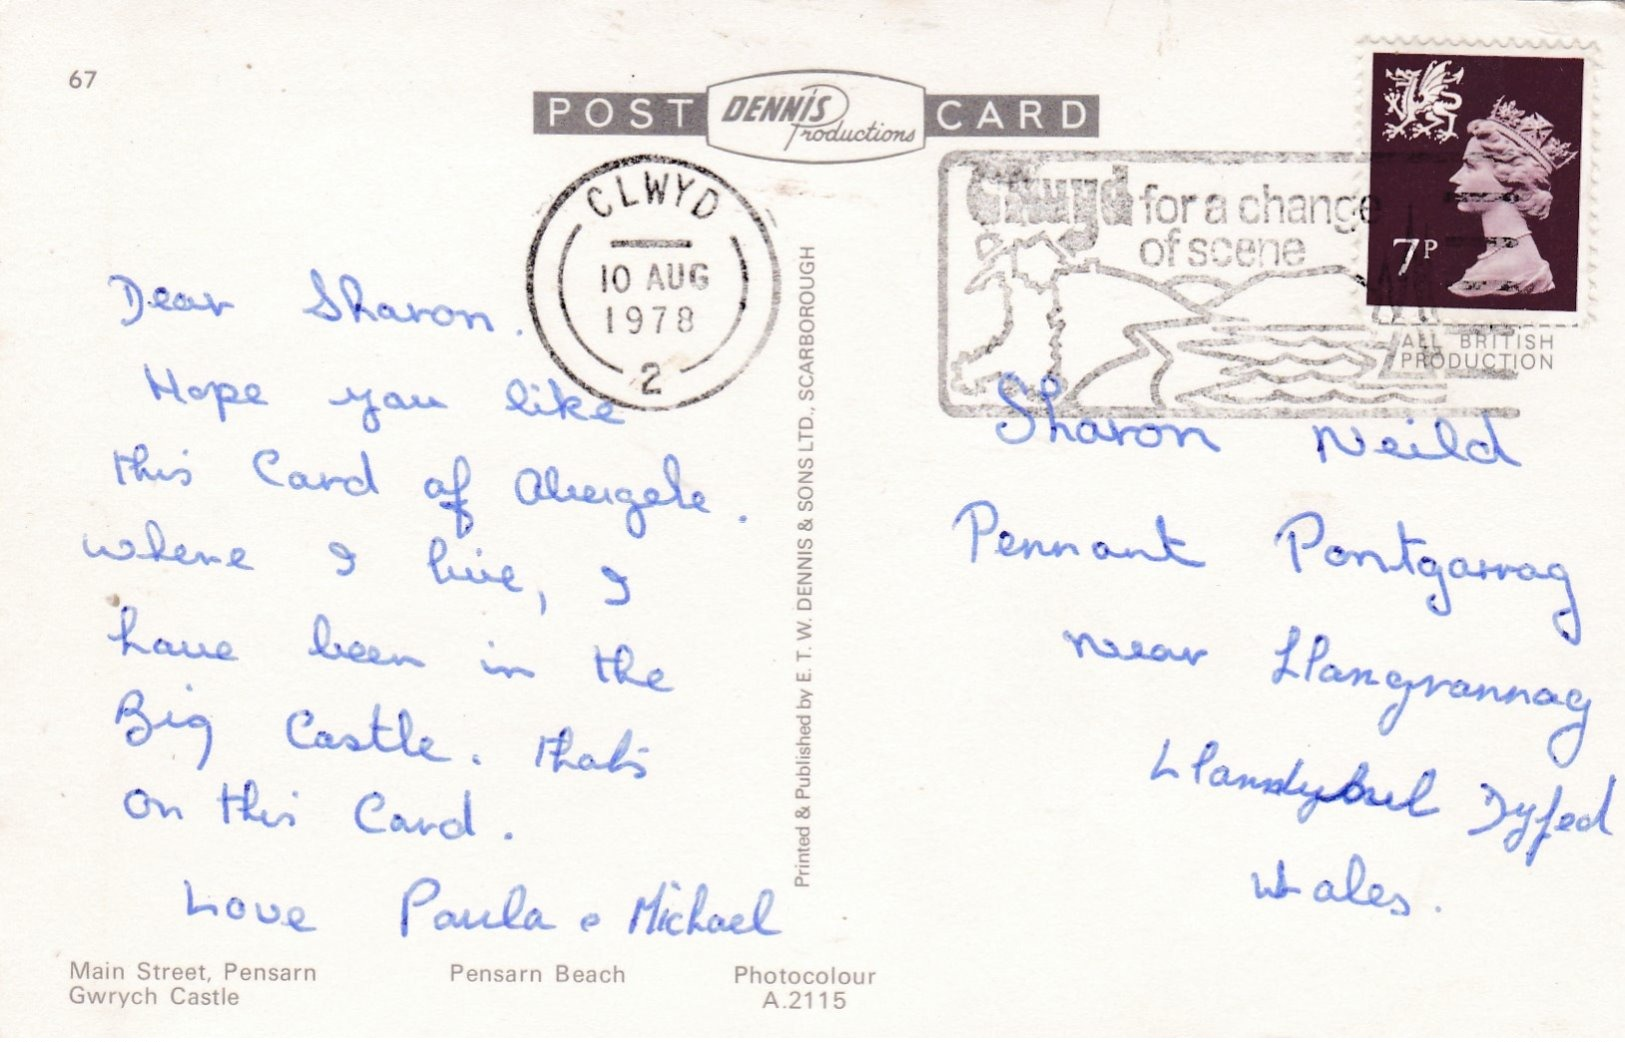 67
POST DENNIS Productions CARD
CLWYD
10 AUG
1978
2
Clwyd for a change
of scene
7P
ALL BRITISH
PRODUCTION
Dear Sharon.
Hope you like
this Card of Abergele.
where I live, I
have been in the
Big Castle. that's
on this Card.
Love Paula & Michael
Printed & Published by E. T. W. DENNIS & SONS LTD., SCARBOROUGH
Sharon Neild
Pennant Pontgarrag
near Llangrannag
Dyfed
Wales.
Main Street, Pensarn
Gwrych Castle
Pensarn Beach
Photocolour
A.2115